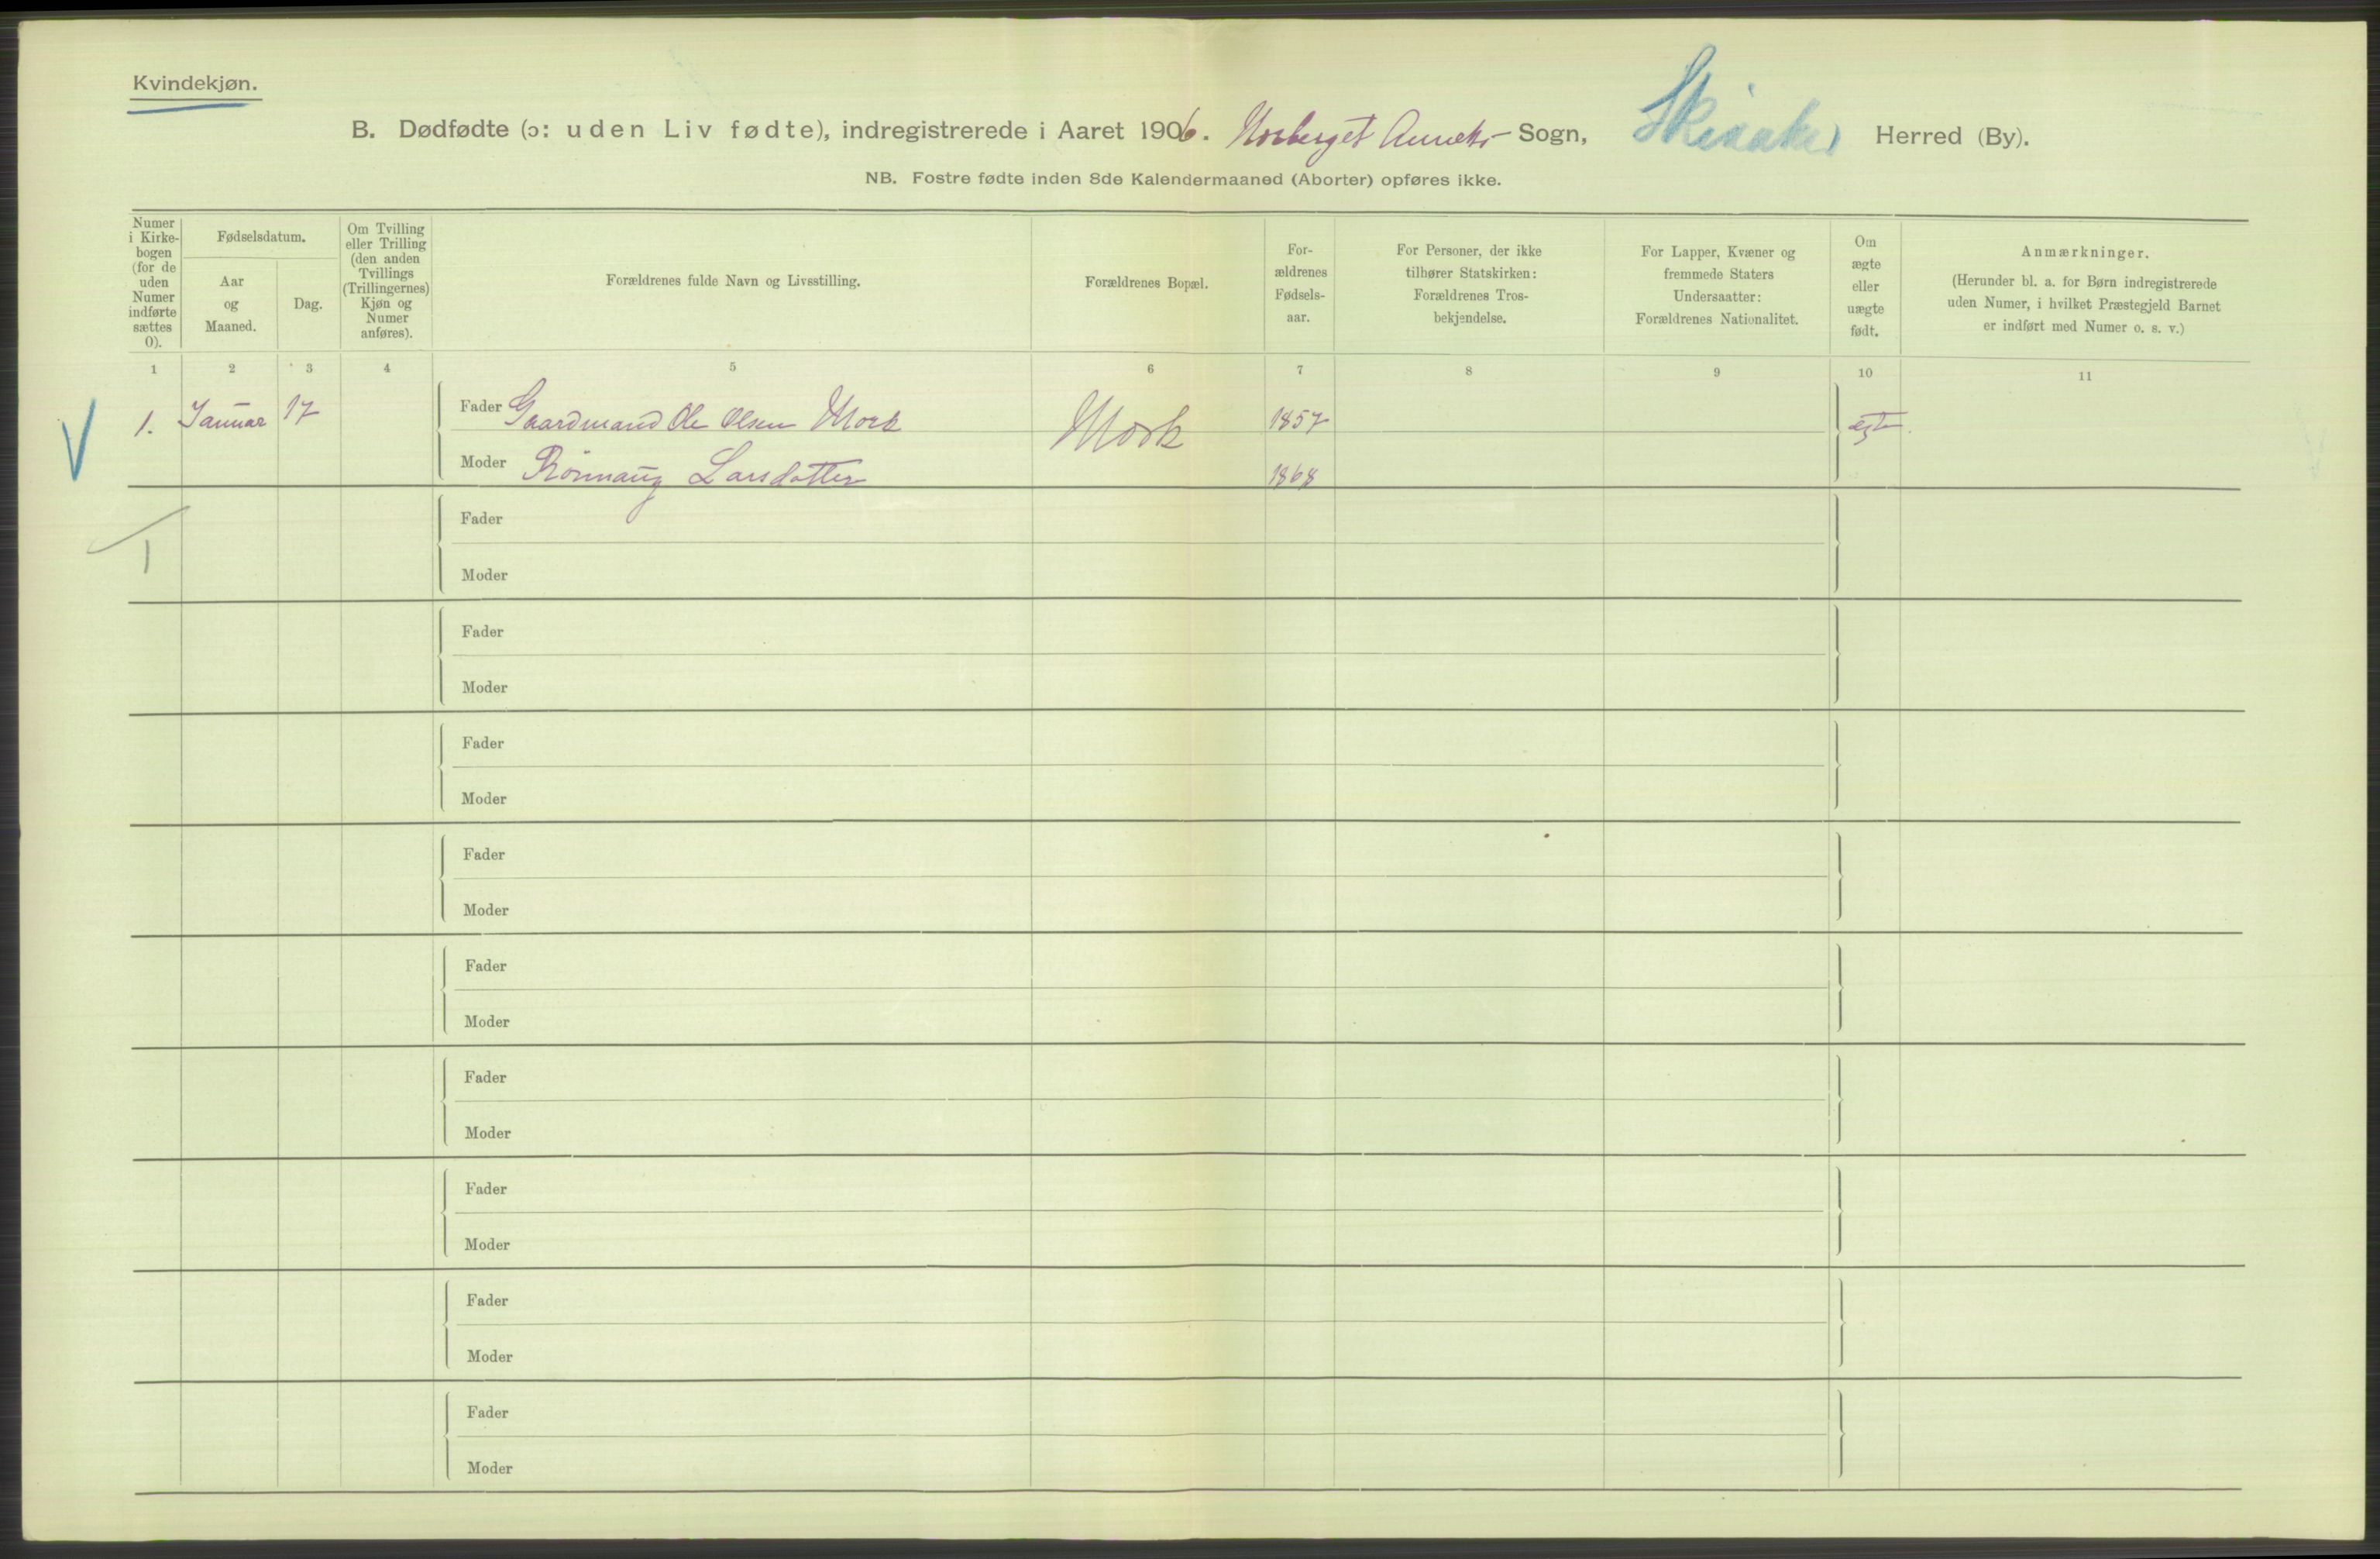 Kvindekjøn.
B. Dødfødte (ɔ: uden Liv fødte), indregistrerede i Aaret 1906. Norberget Anneks- Sogn, Skiaaker Herred (By).
NB. Fostre fødte inden 8de Kalendermaaned (Aborter) opføres ikke.
Numer
i Kirke-
bogen
(for de
uden
Numer
indførte
sættes
0).
Fødselsdatum.
Aar
og
Maaned.
Dag.
Om Tvilling
eller Trilling
(den anden
Tvillings
(Trillingernes)
Kjøn og
Numer
anføres).
Forældrenes fulde Navn og Livsstilling.
Forældrenes Bopæl.
For-
ældrenes
Fødsels-
aar.
For Personer, der ikke
tilhører Statskirken:
Forældrenes Tros-
bekjendelse.
For Lapper, Kvæner og
fremmede Staters
Undersaatter:
Forældrenes Nationalitet.
Om
ægte
eller
uægte
født.
Anmærkninger.
(Herunder bl. a. for Børn indregistrerede
uden Numer, i hvilket Præstegjeld Barnet
er indført med Numer o. s. v.)
1 2 3 4 5 6 7 8 9 10 11
1. Januar 17 Fader Gaardmand Ole Olsen Mork Mork 1857 egte.
Moder Rönnaug Larsdatter 1868
1
Fader
Moder
Fader
Moder
Fader
Moder
Fader
Moder
Fader
Moder
Fader
Moder
Fader
Moder
Fader
Moder
Fader
Moder